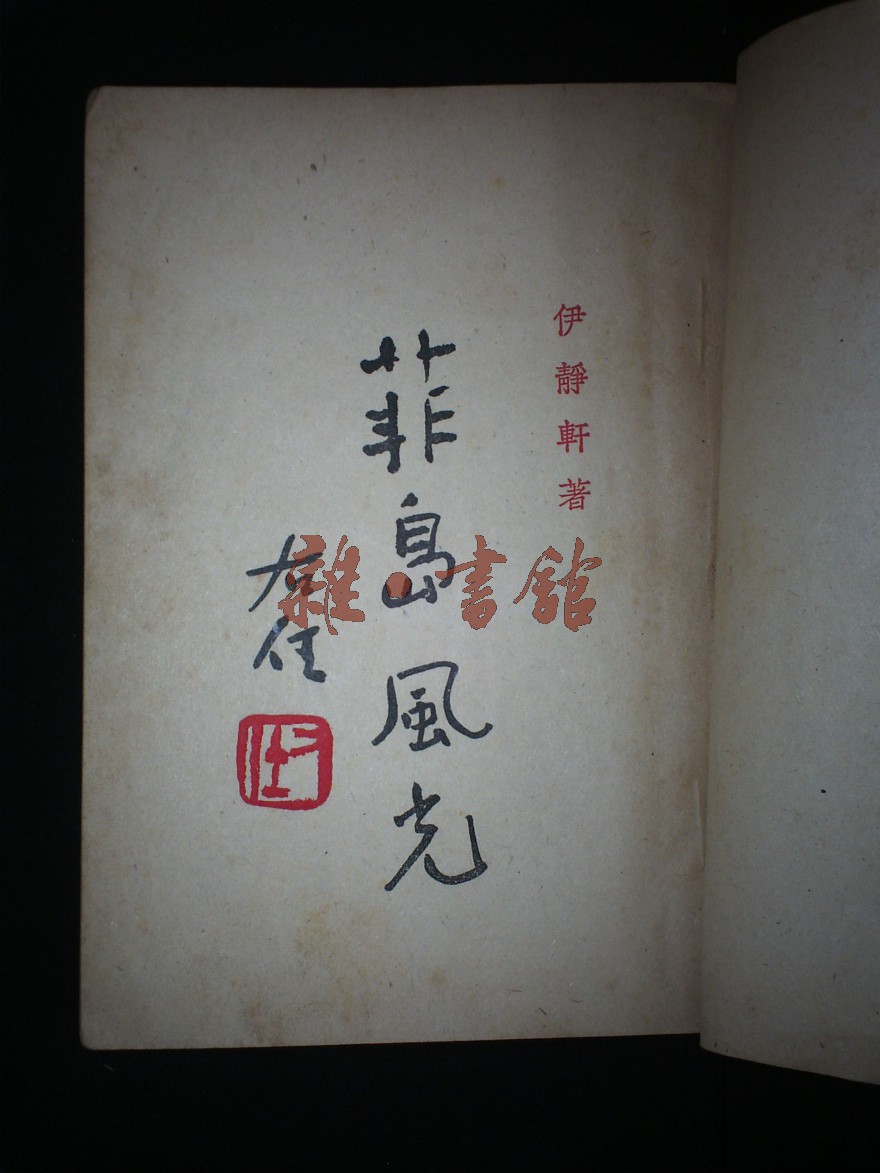 伊靜軒著
菲島風光
右任
雜·書館